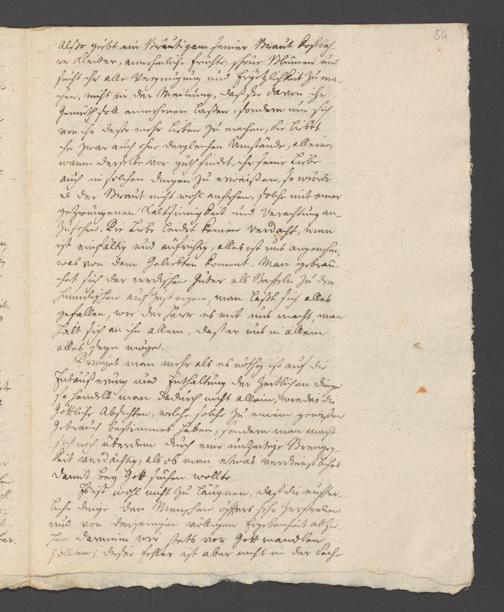 54
Also giebt ein Bräutigam seiner Braut kostbah-
re Kleider, annehmliche Früchte, schöne Blumen und
sucht ihr alle Vergnügung und Ergötzlichkeit zu ma-
chen, nicht in der Meinung, daß sie davon ihr
Gemüth soll einnehmen laßen, sondern um sich
von ihr desto mehr lieben zu machen, sie liebt
ihn zwar auch ohne dergleichen Umstände, allein
wann derselbe vor gut findet, ihr seine Liebe
auch in solchen Dingen zu erweißen, so würde
es der Braut nicht wohl anstehen, solche mit einer
gezwungenen Kaltsinnigkeit und Verachtung an
zusehen. Die Liebe leidet keinen Verdacht, man
ist einfältig und aufrichtig, alles ist uns angenehm,
was von dem Geliebten kommt. Man gebrau-
chet sich der irrdischen Güter als Staffeln zu den
himmlischen aufzusteigen, man läßt sich alles
gefallen, wie der Herr es mit uns macht, man
hält sich an ihn allein, daß er uns in allem
alles seyn möge.
Dringet man mehr als es nöthig ist auf die
Entäußerung und Enthaltung der zeitlichen Dinge
so handelt man dadurch nicht allein, wieder die
Göttliche Absichten, welche solche zu einem gewißen
Gebrauch bestimmet haben, sondern man macht
sich noch überdem durch eine unzeitige Strenge-
keit verdächtig, als ob man etwas verdienstliches
damit bey Gott suchen wollte.
Es ist wohl nicht zu läugnen, daß die äußer-
liche Dinge den Menschen öfters sehr zerstreuen
und von derjenigen völligen Ergebenheit abzie-
hen darinnen wir stets vor Gott wandlen
sollen; dieser Fehler ist aber nicht in der Sach-